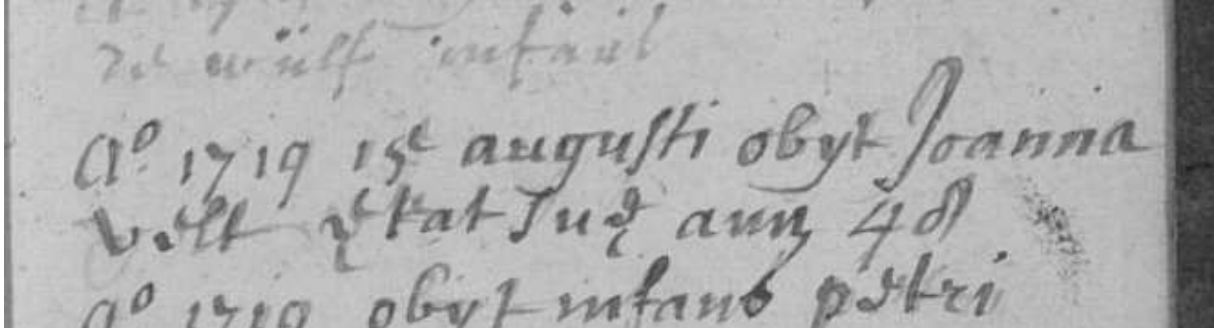 de wülf infans
Ao. 1719 15e augusti obyt Joanna
velt ętat Suę anņ 48
Ao 1719 obyt infans petri